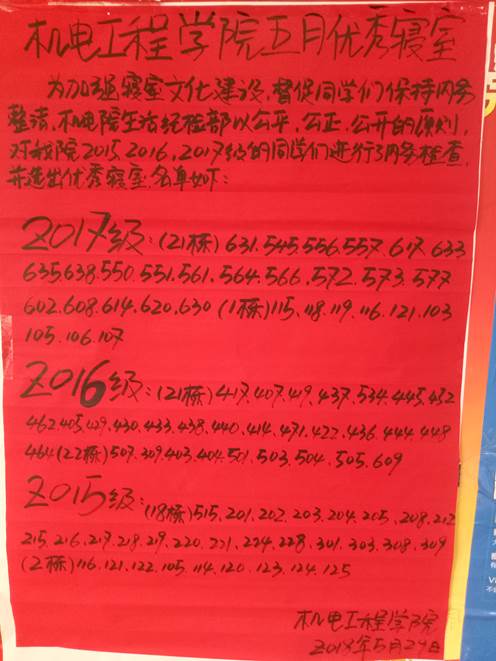 机电工程学院五月优秀寝室
为加强寝室文化建设,督促同学们保持内务
整洁,机电院生活纪检部以公平,公正,公开的原则,
对我院2015,2016,2017级的同学们进行了内务检查,
并选出优秀寝室,名单如下:
2017级:(21栋)631.545.556.557.617.633
635.638.550.551.561.564.566.572.573.577
602.608.614.620.630(1栋)115.118.119.116.121.103
105.106.107
2016级:(21栋)417.407.419.437.534.445.452
462.405.429.430.433.438.440.414.471.422.436.444.448
464(22栋)507.309.403.404.501.503.504.505.609
2015级:(18栋)515.201.202.203.204.205.208.212
215.216.217.218.219.220.221.224.228.301.303.308.309
(2栋)116.121.122.105.114.120.123.124.125
机电工程学院
2018年5月29日